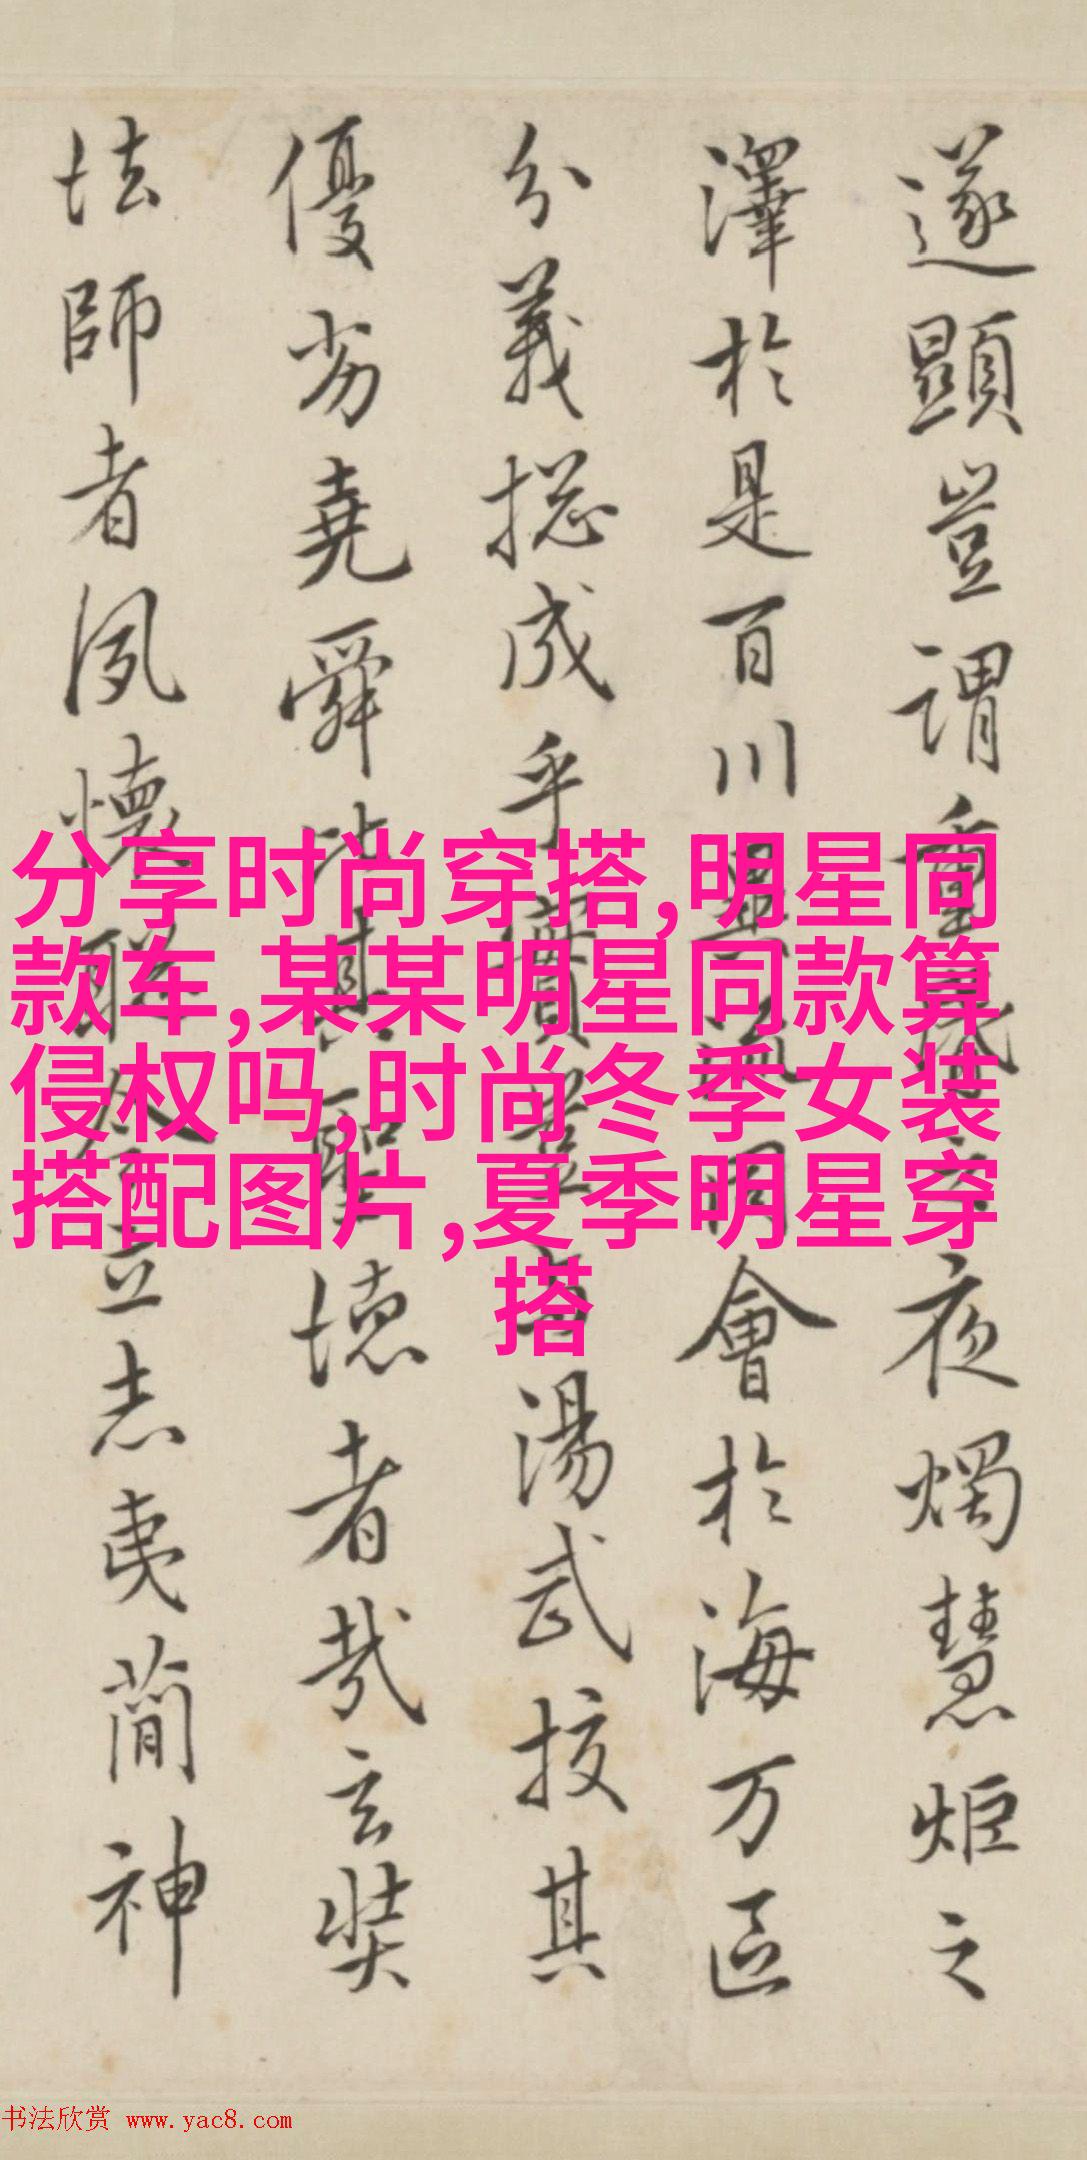 遂顯豈謂重昏之夜燭慧炬之
澤於是百川異流同會於海万區
分義揔成乎實豈与湯武校其
優劣堯舜比其聖德者哉玄奘
法師者夙懷聡令立志夷簡神
分享时尚穿搭,明星同
款车,某某明星同款算
侵权吗,时尚冬季女装
搭配图片,夏季明星穿
搭
书法欣赏 www.yac8.com